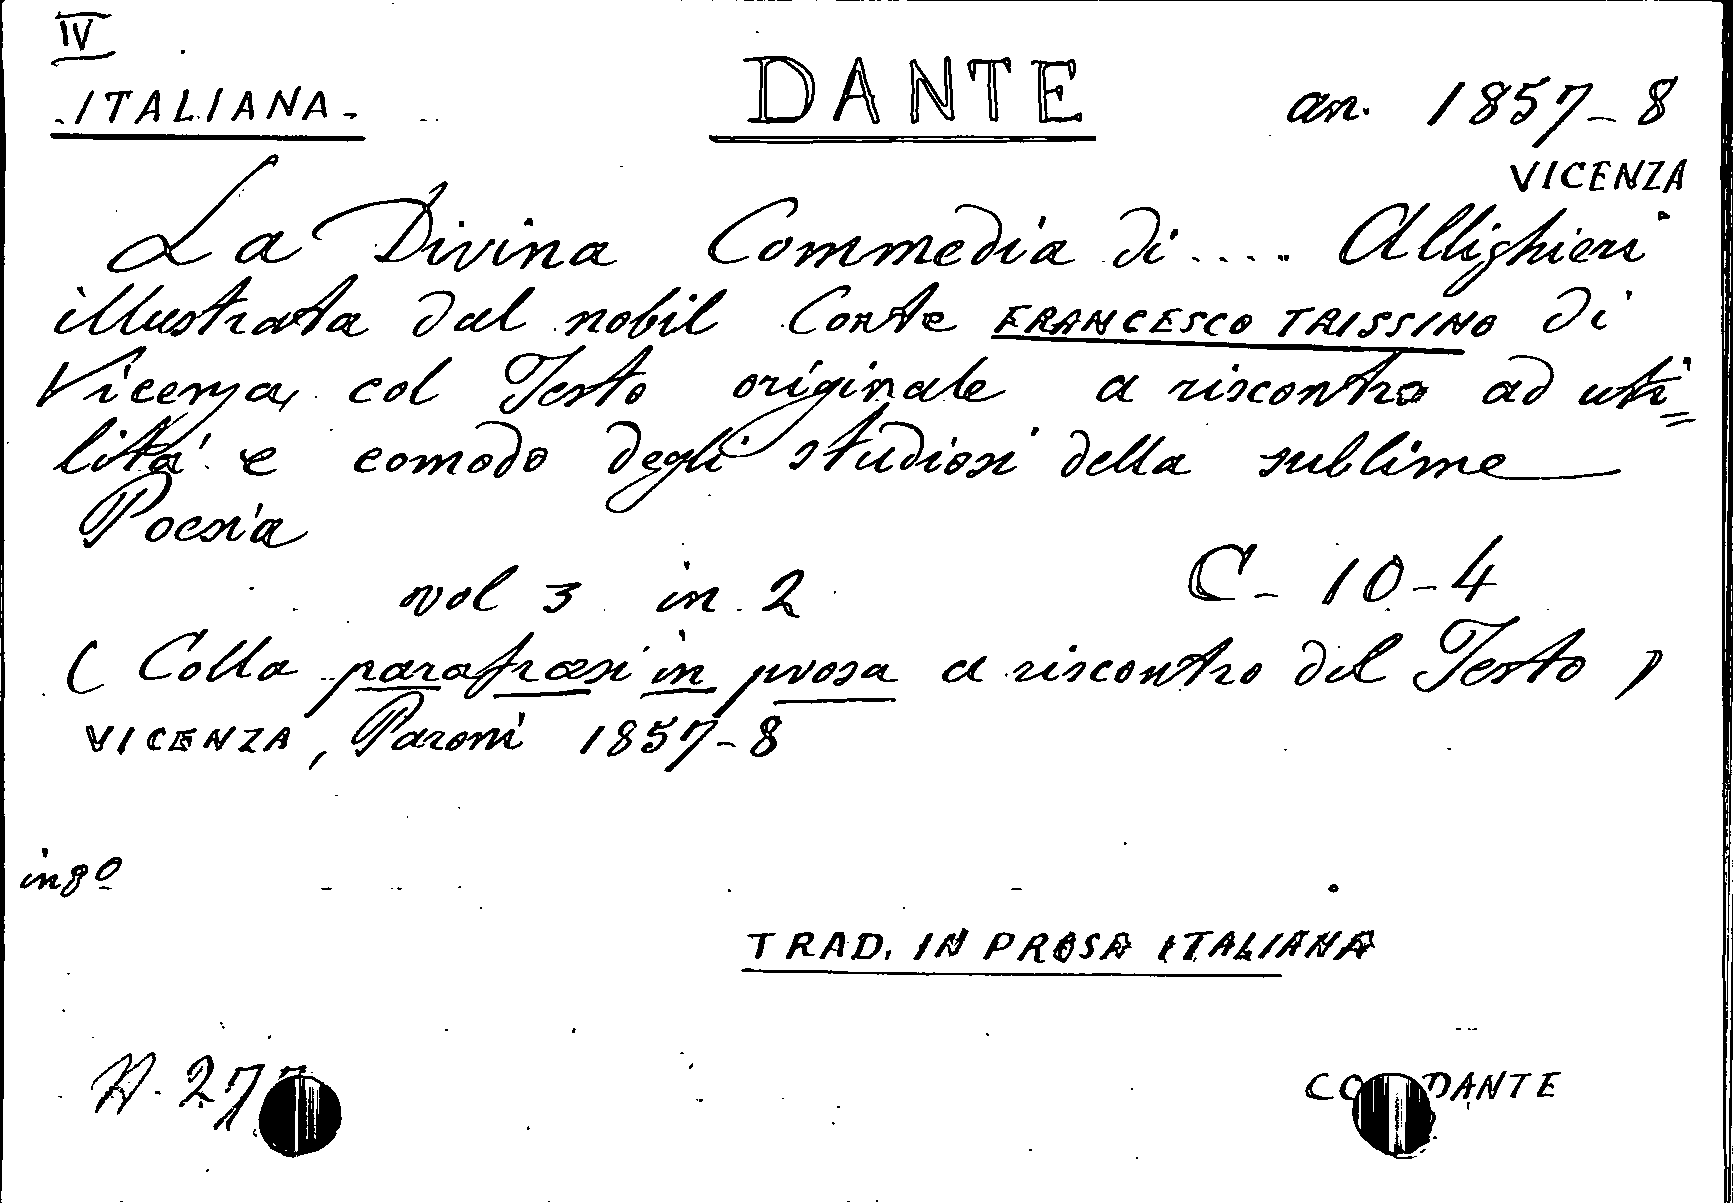 IV
ITALIANA - DANTE an. 1857-8
VICENZA
La Divina Commedia di .... Allighieri
illustrata dal nobil Conte FRANCESCO TRISSINO di
Vicenza, col Testo originale a riscontro ad uti=
lità e comodo degli studiosi della sublime
Poesia
vol 3 in 2 C-10-4
( Colla parafrasi in prosa a riscontro del Testo )
VICENZA, Paroni 1857-8
in 8º
TRAD. IN PROSA ITALIANA
DANTE